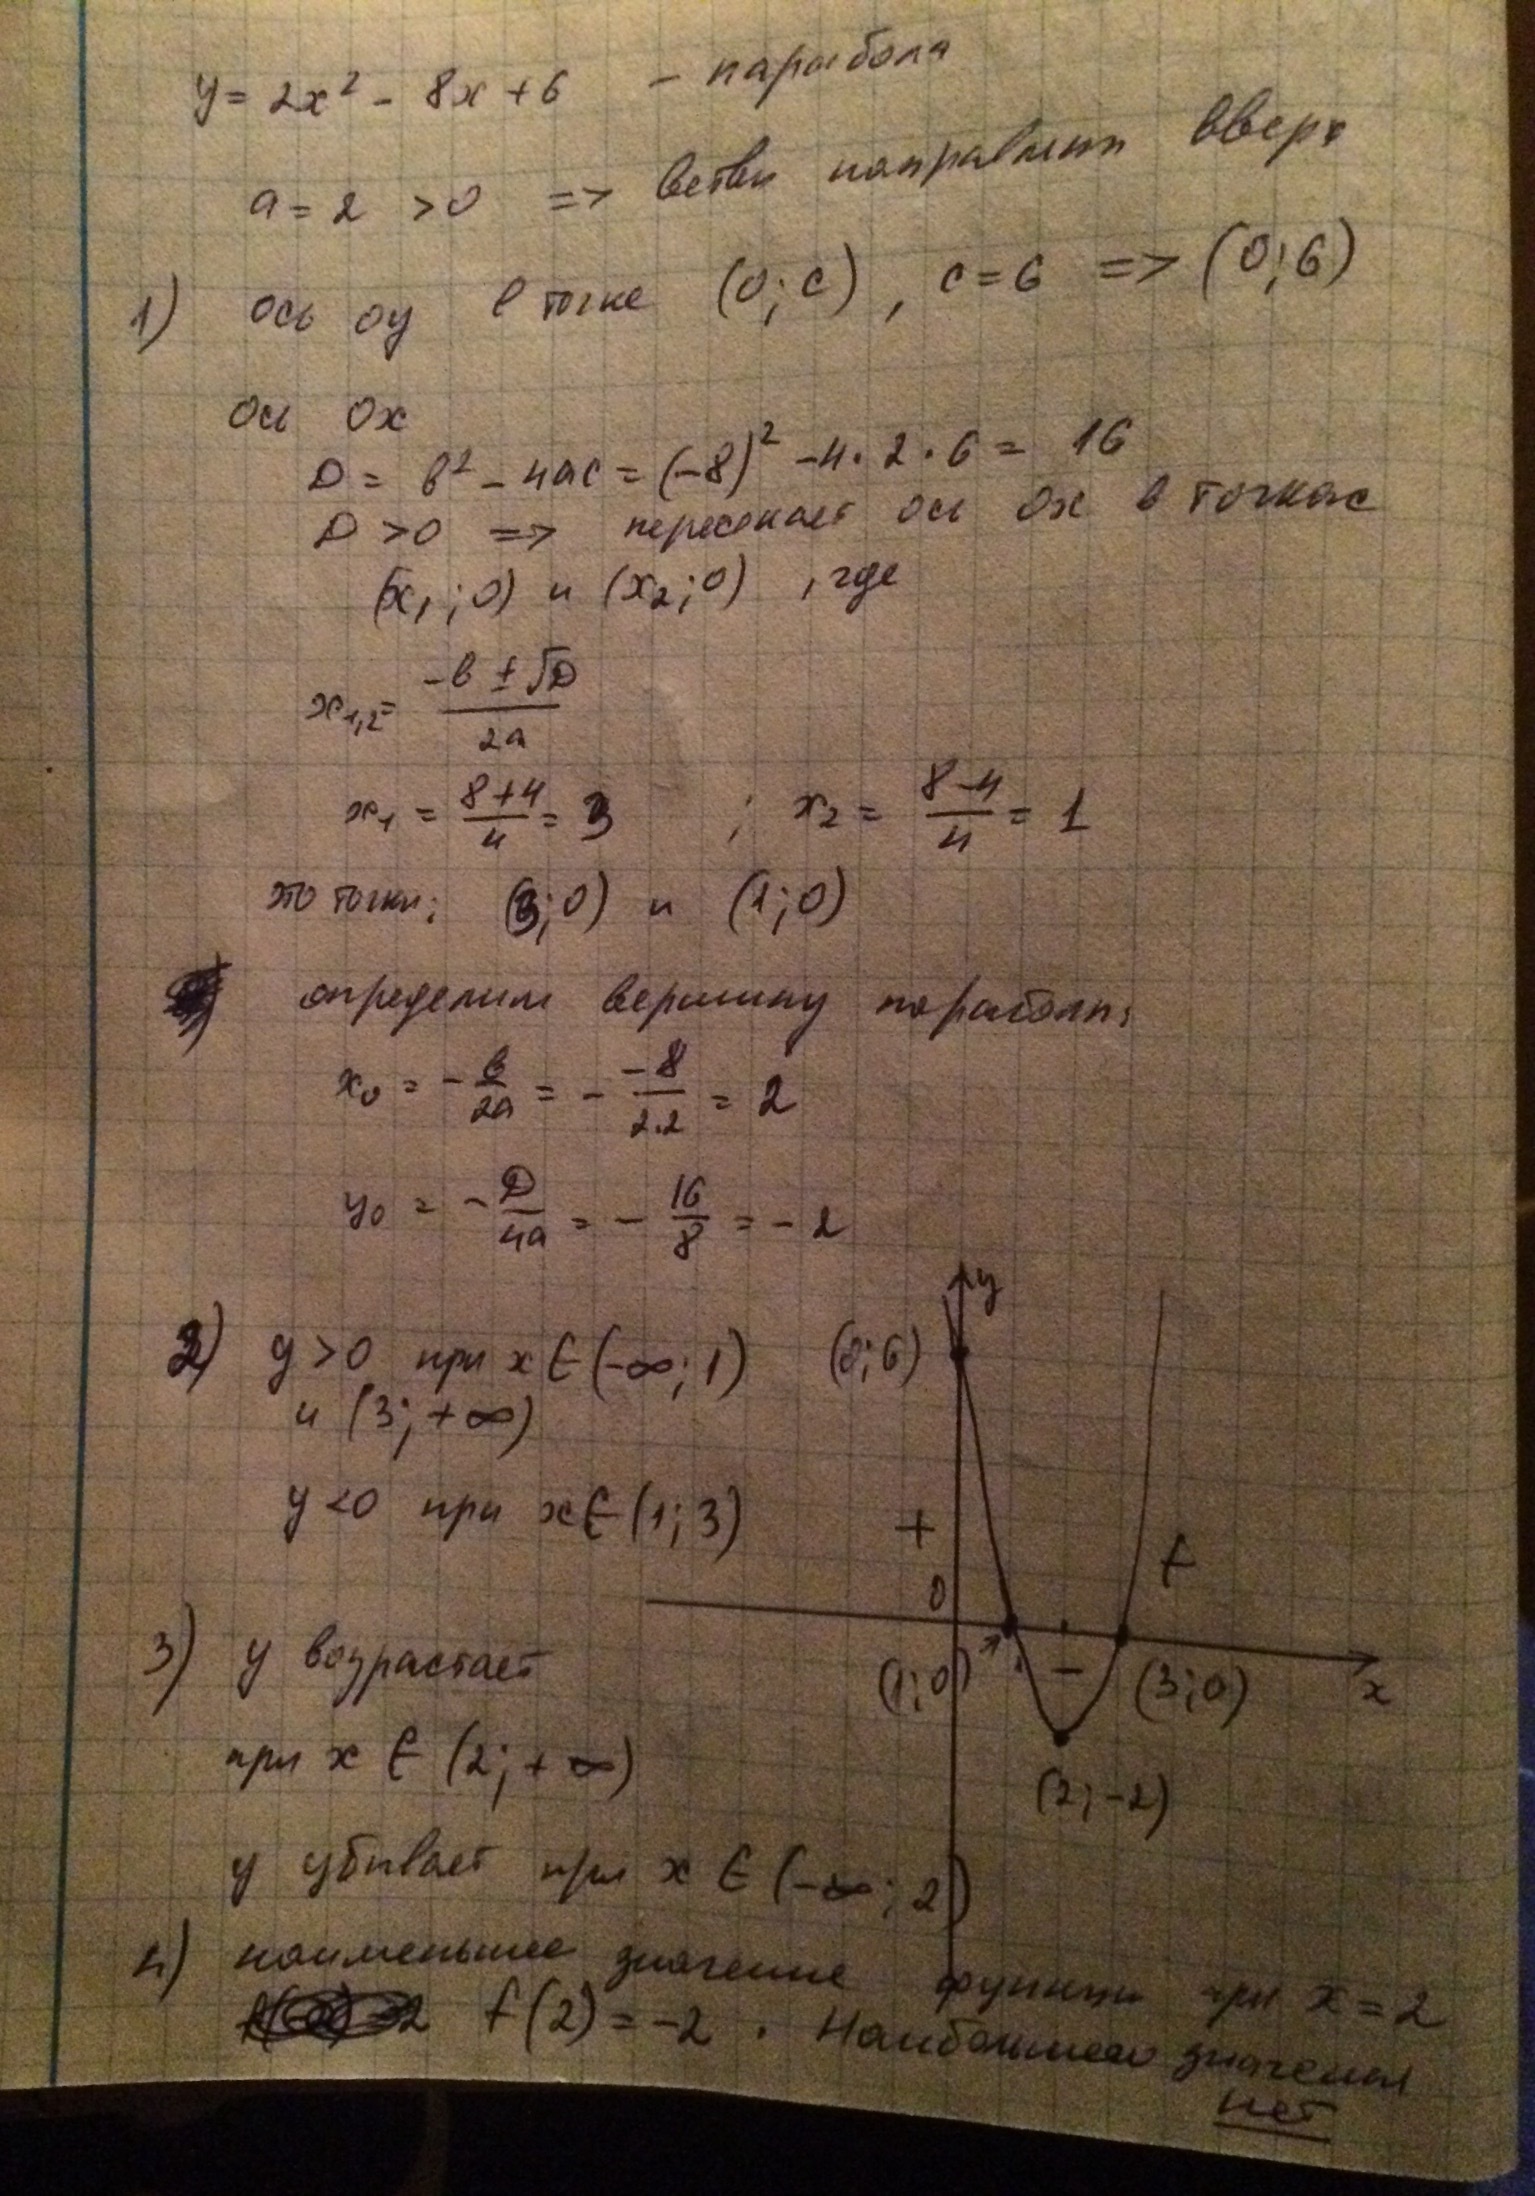 y = 2x² - 8x + 6 - парабола
a = 2 > 0 => ветви направлены вверх
1) ось oy в точке (0; c), c = 6 => (0; 6)
ось Ox
D = b² - 4ac = (-8)² - 4·2·6 = 16
D > 0 => пересекает ось Ox в точках
(x₁; 0) и (x₂; 0), где
x₁,₂ = (-b ± √D)/2a
x₁ = (8+4)/4 = 3 ; x₂ = (8-4)/4 = 1
это точки: (3; 0) и (1; 0)
определим вершину параболы:
x₀ = - b/2a = - (-8)/(2·2) = 2
y₀ = - D/4a = - 16/8 = -2
2) y > 0 при x ∈ (-∞; 1)
и (3; +∞)
y < 0 при x ∈ (1; 3)
3) y возрастает
при x ∈ (2; +∞)
y убывает при x ∈ (-∞; 2)
4) наименьшее значение функции при x = 2
f(2) = -2. Наибольшего значения
нет
y
(0; 6)
+
+
0
(1; 0)
-
(3; 0)
x
(2; -2)